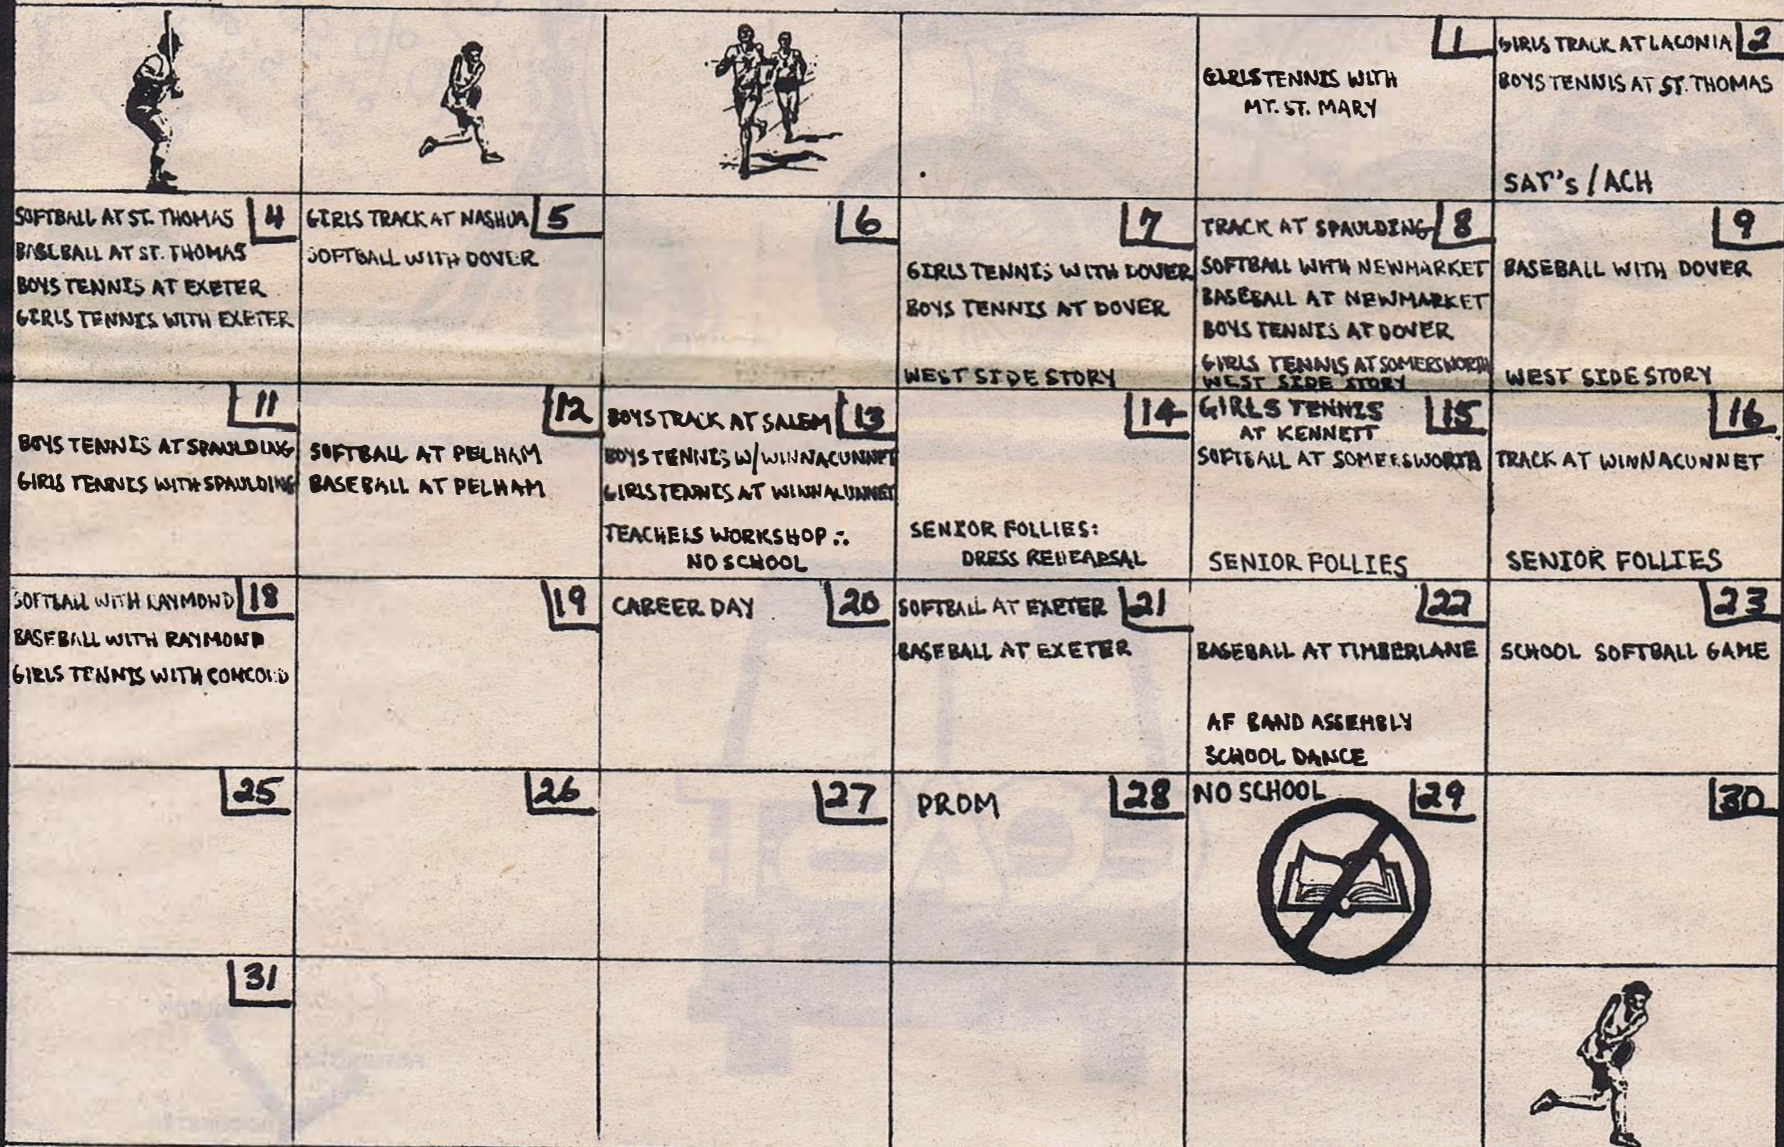 1
GIRLS TENNIS WITH
MT. ST. MARY
GIRLS TRACK AT LACONIA 2
BOYS TENNIS AT ST. THOMAS
SAT's / ACH
SOFTBALL AT ST. THOMAS 4
BASEBALL AT ST. THOMAS
BOYS TENNIS AT EXETER
GIRLS TENNIS WITH EXETER
GIRLS TRACK AT NASHUA 5
SOFTBALL WITH DOVER
6
7
GIRLS TENNIS WITH DOVER
BOYS TENNIS AT DOVER
WEST SIDE STORY
TRACK AT SPAULDING 8
SOFTBALL WITH NEWMARKET
BASEBALL AT NEWMARKET
BOYS TENNIS AT DOVER
GIRLS TENNIS AT SOMERSWORTH
WEST SIDE STORY
9
BASEBALL WITH DOVER
WEST SIDE STORY
11
BOYS TENNIS AT SPAULDING
GIRLS TENNIS WITH SPAULDING
12
SOFTBALL AT PELHAM
BASEBALL AT PELHAM
BOYS TRACK AT SALEM 13
BOYS TENNIS W/WINNACUNNET
GIRLS TENNIS AT WINNACUNNET
TEACHERS WORKSHOP ∴
NO SCHOOL
14
SENIOR FOLLIES:
DRESS REHEARSAL
GIRLS TENNIS 15
AT KENNETT
SOFTBALL AT SOMERSWORTH
SENIOR FOLLIES
16
TRACK AT WINNACUNNET
SENIOR FOLLIES
SOFTBALL WITH RAYMOND 18
BASEBALL WITH RAYMOND
GIRLS TENNIS WITH CONCORD
19
CAREER DAY 20
SOFTBALL AT EXETER 21
BASEBALL AT EXETER
22
BASEBALL AT TIMBERLANE
AF BAND ASSEMBLY
SCHOOL DANCE
23
SCHOOL SOFTBALL GAME
25
26
27
PROM 28
NO SCHOOL 29
30
31